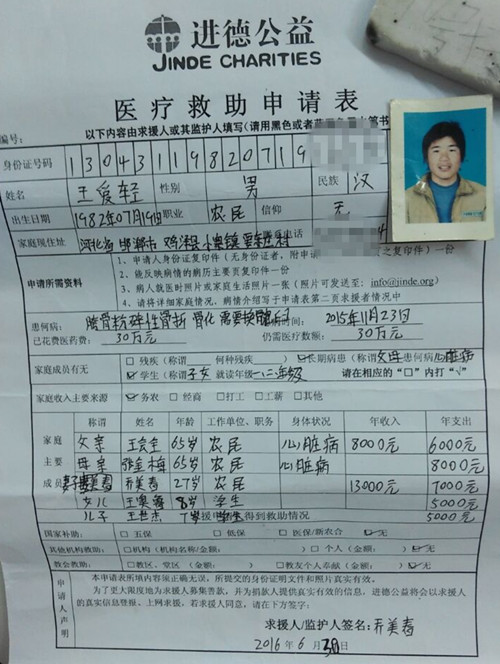 进德公益
JINDE CHARITIES
医疗救助申请表
编号：
以下内容由求援人或其监护人填写（请用黑色或者
身份证号码 13043119820719
姓名 王爱轻 性别 男 民族 汉
出生日期 1982年07月19日 职业 农民 信仰 无
家庭现住址 河北省 邯郸市 鸡泽县 小寨镇 电话 4
申请所需资料
1、申请人身份证复印件（无身份证者，附申请 之复印件）一份
2、能反映病情的病历主要页复印件一份
3、病人就医时照片或家庭生活照片一张（照片可发送至：info@jinde.org）
4、请将详细家庭情况，病情介绍写于申请表第二页求援者情况中
患何病： 骨粉碎性骨折 骨化 需要换 时间： 2015年11月23日
已花费医药费： 30万元 仍需医疗数额： 30万元
家庭成员有无 □残疾（称谓 何种残疾 ） ☑长期病患（称谓父母 患何病心脏病
☑学生（称谓子女 就读年级一、二年级 请在相应的“□”内打“√”
家庭收入主要来源 ☑务农 □经商 □打工 □工薪 □其他
家庭主要成员
称谓 姓名 年龄 工作单位、职务 身体状况 年收入 年支出
父亲 王 65岁 农民 心脏病 8000元 6000元
母亲 张金梅 65岁 农民 心脏病 8000元
妻子 乔美春 27岁 农民 13000元 7000元
女儿 王奥 8岁 学生 5000元
儿子 王世杰 7岁 学生 得到救助情况 5000元
国家补助： □五保 □低保 □医保/新农合 ☑无
其他机构救助： □机构（机构名称/金额： ） □个人（金额： ） ☑无
教会救助： □教区、堂区（金额： ） □教友个人奉献（金额： ） ☑无
申请人声明
本申请表所填内容须正确无误，所提交的身份证明文件和照片真实有效。
为了更大限度地为求援人募集善款，并为捐款人提供真实有效的信息，进德公益将会以求援人
的真实信息登报、上网求援，若求援人同意，请在下方签字：
求援人/监护人签名：乔美春
2016年6月30日